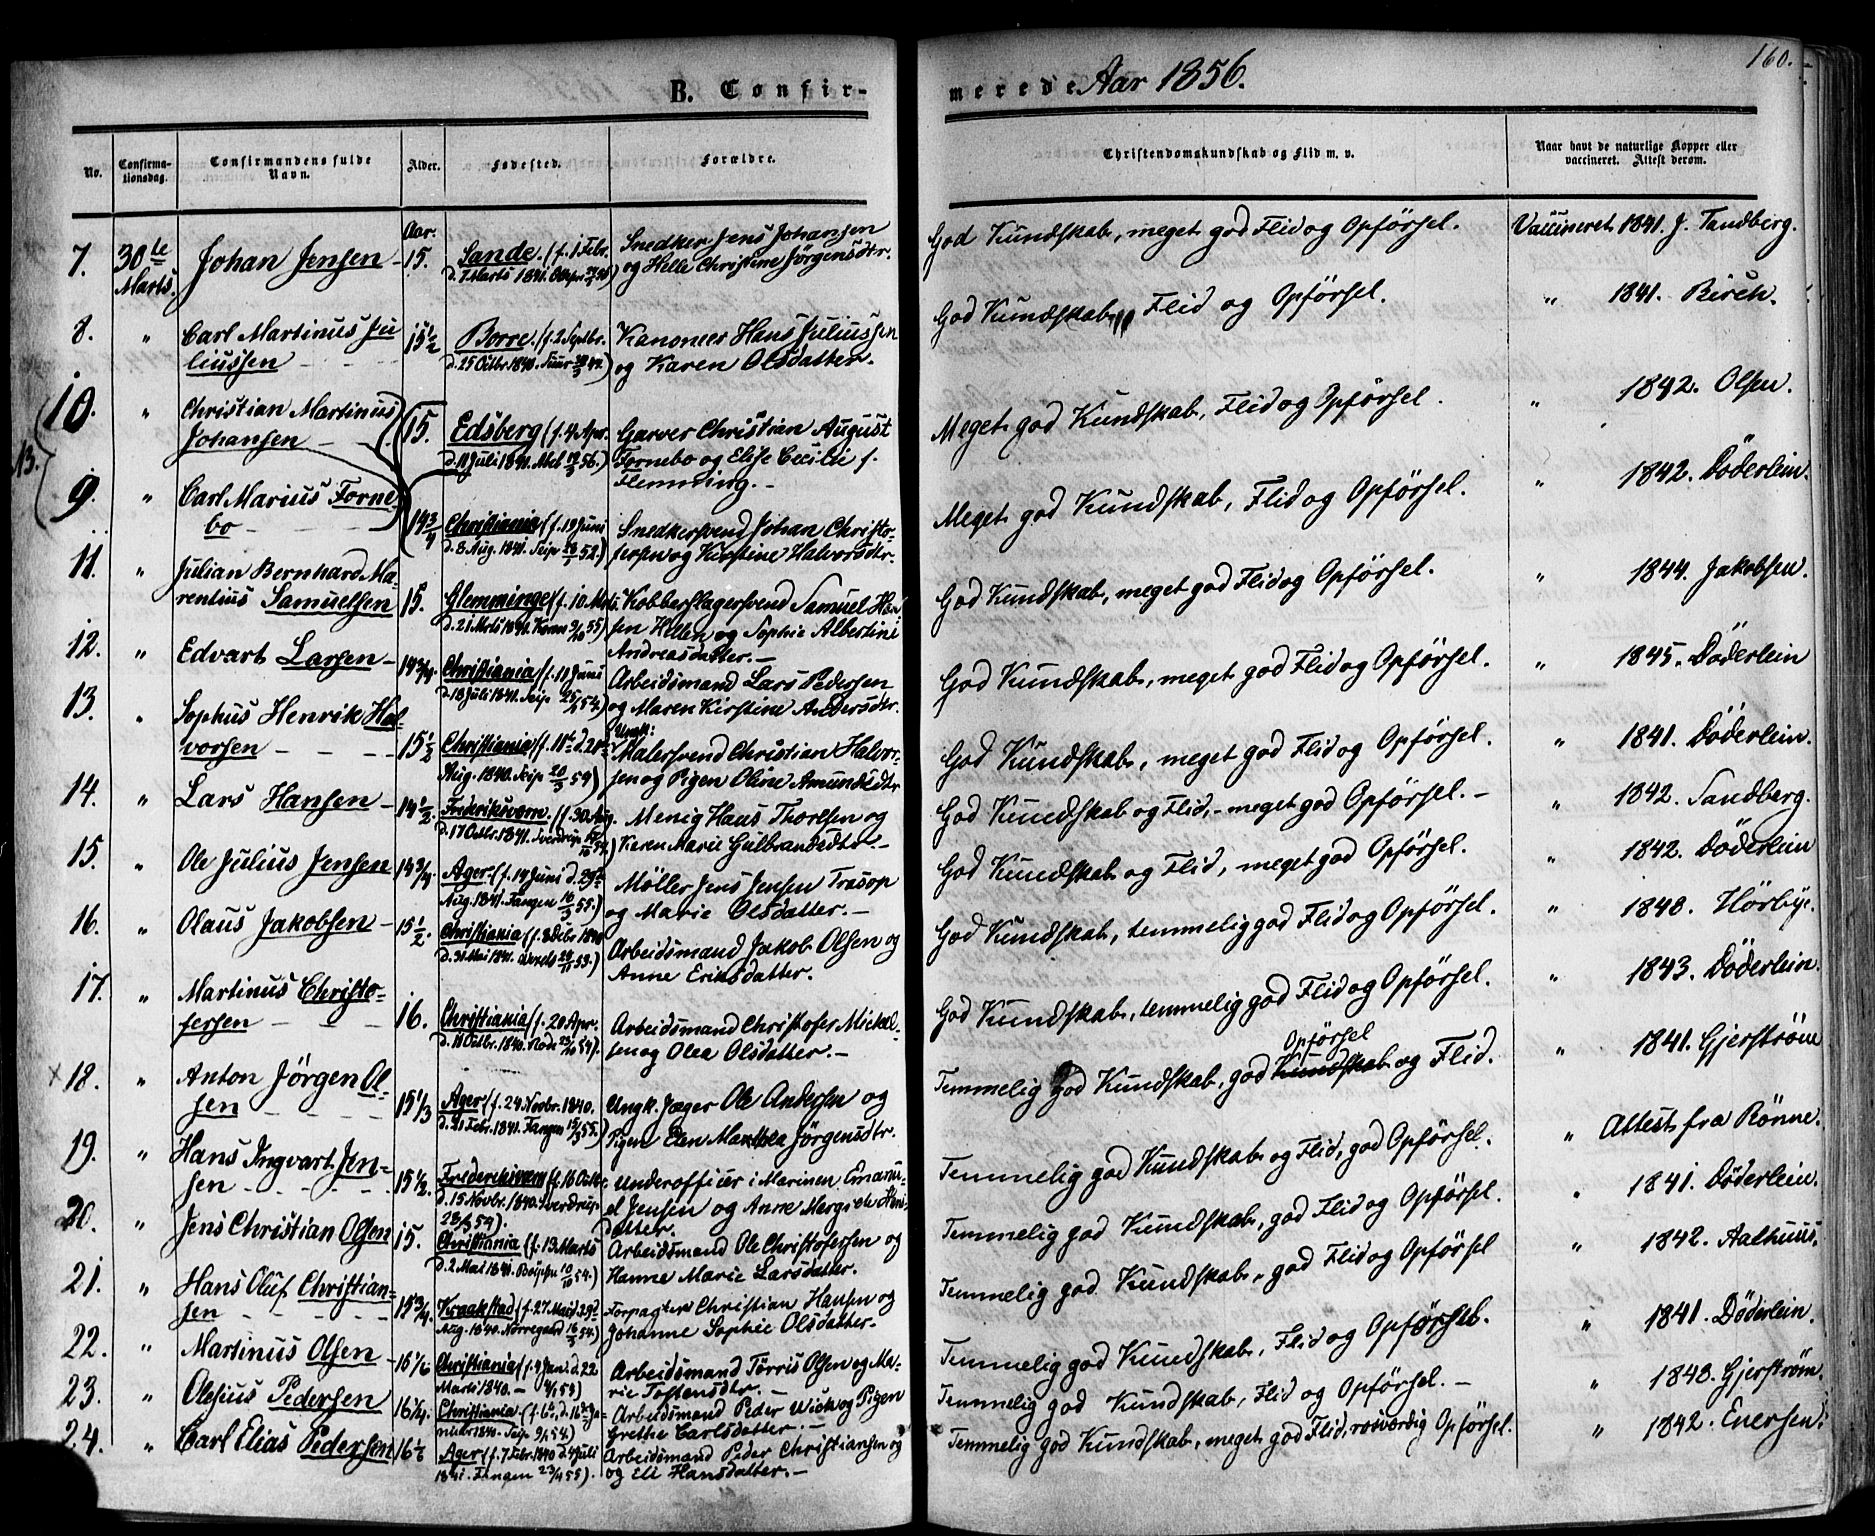 160.
B. Confirmerede Aar 1856.
No. Confirmationsdag. Confirmandens fulde Navn. Alder. Fødested. Forældre. Christendomskundskab og Flid m. v. Naar havt de naturlige Kopper eller vaccineret. Attest derom.
Aar.
7. 30te Marts. Johan Jensen 15. Sande. (f. 1 Febr. d. 7 Marts 1841. Snedker Jens Johansen og Helle Christine Jörgensdtr. God Kundskab, meget god Flid og Opförsel. Vaccineret 1841. J. Tandberg.
8. " Carl Martinus Juliussen 15½ Borre. (f. 2 Septbr. d. 25 Octbr. 1840. Kanoneer Hans Juliussen og Karen Olsdatter. God Kundskab, Flid og Opförsel. " 1841. Birch.
10. " Christian Martinus Johansen 15. Edsberg (f. 4 Apr. d. 11 Juli 1841. Garver Christian August Fornebo og Elise Cecilie f. Flemming. Meget god Kundskab, Flid og Opförsel. " 1842. Olsen.
13.
9. " Carl Marius Fornebo 14¾ Christiania (f. 19 Juni d. 8 Aug. 1841. Snedkersvend Johan Christofersen og Kirstine Halvorsdtr. Meget god Kundskab, Flid og Opförsel. " 1842. Döderlein.
11. " Julian Bernhard Marentius Samuelsen 15. Glemminge (f. 10. d. 21 Mrts 1841. Kobberslagersvend Samuel Hansen Hellen og Sophie Albertine Andreasdatter. God Kundskab, meget god Flid og Opförsel. " 1844. Jakobsen.
12. " Edvart Larsen 14¾. Christiania (f. 11 Juni d. 18 Juli 1841. Arbeidsmand Lars Pedersen og Maren Kirstine Andersdtr. God Kundskab, meget god Flid og Opförsel. " 1845. Döderlein
13. " Sophus Henrik Halvorsen 15½ Christiania (f. Aug. 1840. Ungk: Malersvend Christian Halvorsen og Pigen Oline Amundsdtr God Kundskab, meget god Flid og Opförsel. " 1841. Döderlein.
14. " Lars Hansen 14½ Frederiksværn. (f. 30 Aug. d. 17 Octbr. 1841. Menig Hans Thoresen og Karen Marie Gulbrandsdtr. God Kundskab og Flid, meget god Opförsel. " 1842. Sandberg.
15. " Ole Julius Jensen 14¾ Ager. (f. 14 Juni d. 29de Aug. 1841. Fangen Møller Jens Jensen Trasop og Marie Olsdatter. God Kundskab og Flid, meget god Opförsel. " 1842. Döderlein
16. " Olaus Jakobsen 15½. Christiania (f. 8 Dcbr. 1840 d. 31 Mai 1841. Arbeidsmand Jakob Olsen og Anne Eriksdatter. God Kundskab, temmelig god Flid og Opförsel. " 1848. Hörbye.
17. " Martinus Christofersen 16. Christiania (f. 20 Apr. d. 11 Octbr. 1840. Arbeidsmand Christofer Mickelsen og Olea Olsdatter. God Kundskab, temmelig god Flid og Opförsel. " 1843. Döderlein.
x 18. " Anton Jörgen Olsen 15⅓ Ager (f. 24. Novbr. 1840. d. 21 Febr. 1841. Fangen Ungk. Jæger Ole Andersen og Pigen Elen Mathea Jörgensdtr. Temmelig god Kundskab, god Kundskab Opförsel og Flid. " 1841. Gjerströme
19. " Hans Ingvart Jensen 15½. Frederiksværn (f. 16 Octbr. d. 15 Novbr. 1840. Sverdrup Underofficier i Marinen Emanuel Jensen og Anne Margrete Hansdatter. Temmelig god Kundskab og Flid, god Opförsel. " Attest fra Rönne.
20. " Jens Christian Olsen 15. Christiania (f. 13. Marts d. 2 Mai 1841. Arbeidsmand Ole Christofersen og Hanne Marie Larsdatter. Temmelig god Kundskab, god Flid og Opförsel. " 1841. Döderlein.
21. " Hans Oluf Christiansen 15¾ Kraakstad (f. 27. Mai d. 29de Aug. 1840. Nörregaard Forpagter Christian Hansen og Johanne Sophie Olsdatter. Temmelig god Kundskab, god Flid og Opförsel " 1842. Aalhuus.
22. " Martinus Olsen 16⅙ Christiania (f. d. 22 Marts 1840. Arbeidsmand Törris Olsen og Marie Tostensdtr. Temmelig god Kundskab, Flid og Opförsel. " 1841. Döderlein.
23. " Olesius Pedersen 16¼. Christiania. Arbeidsmand Peder Wick og Pigen Grethe Carlsdatter. Temmelig god Kundskab, Flid og Opförsel. " 1848. Gjerström.
24. " Carl Elias Pedersen 16½ Ager (f. 7 Febr. 1840 d. 4 Juli 1841. Fangen Arbeidsmand Peder Christiansen og Eli Hansdatter. Temmelig god Kundskab, meget god Flid, rosværdig Opförsel. " 1842. Enersen.